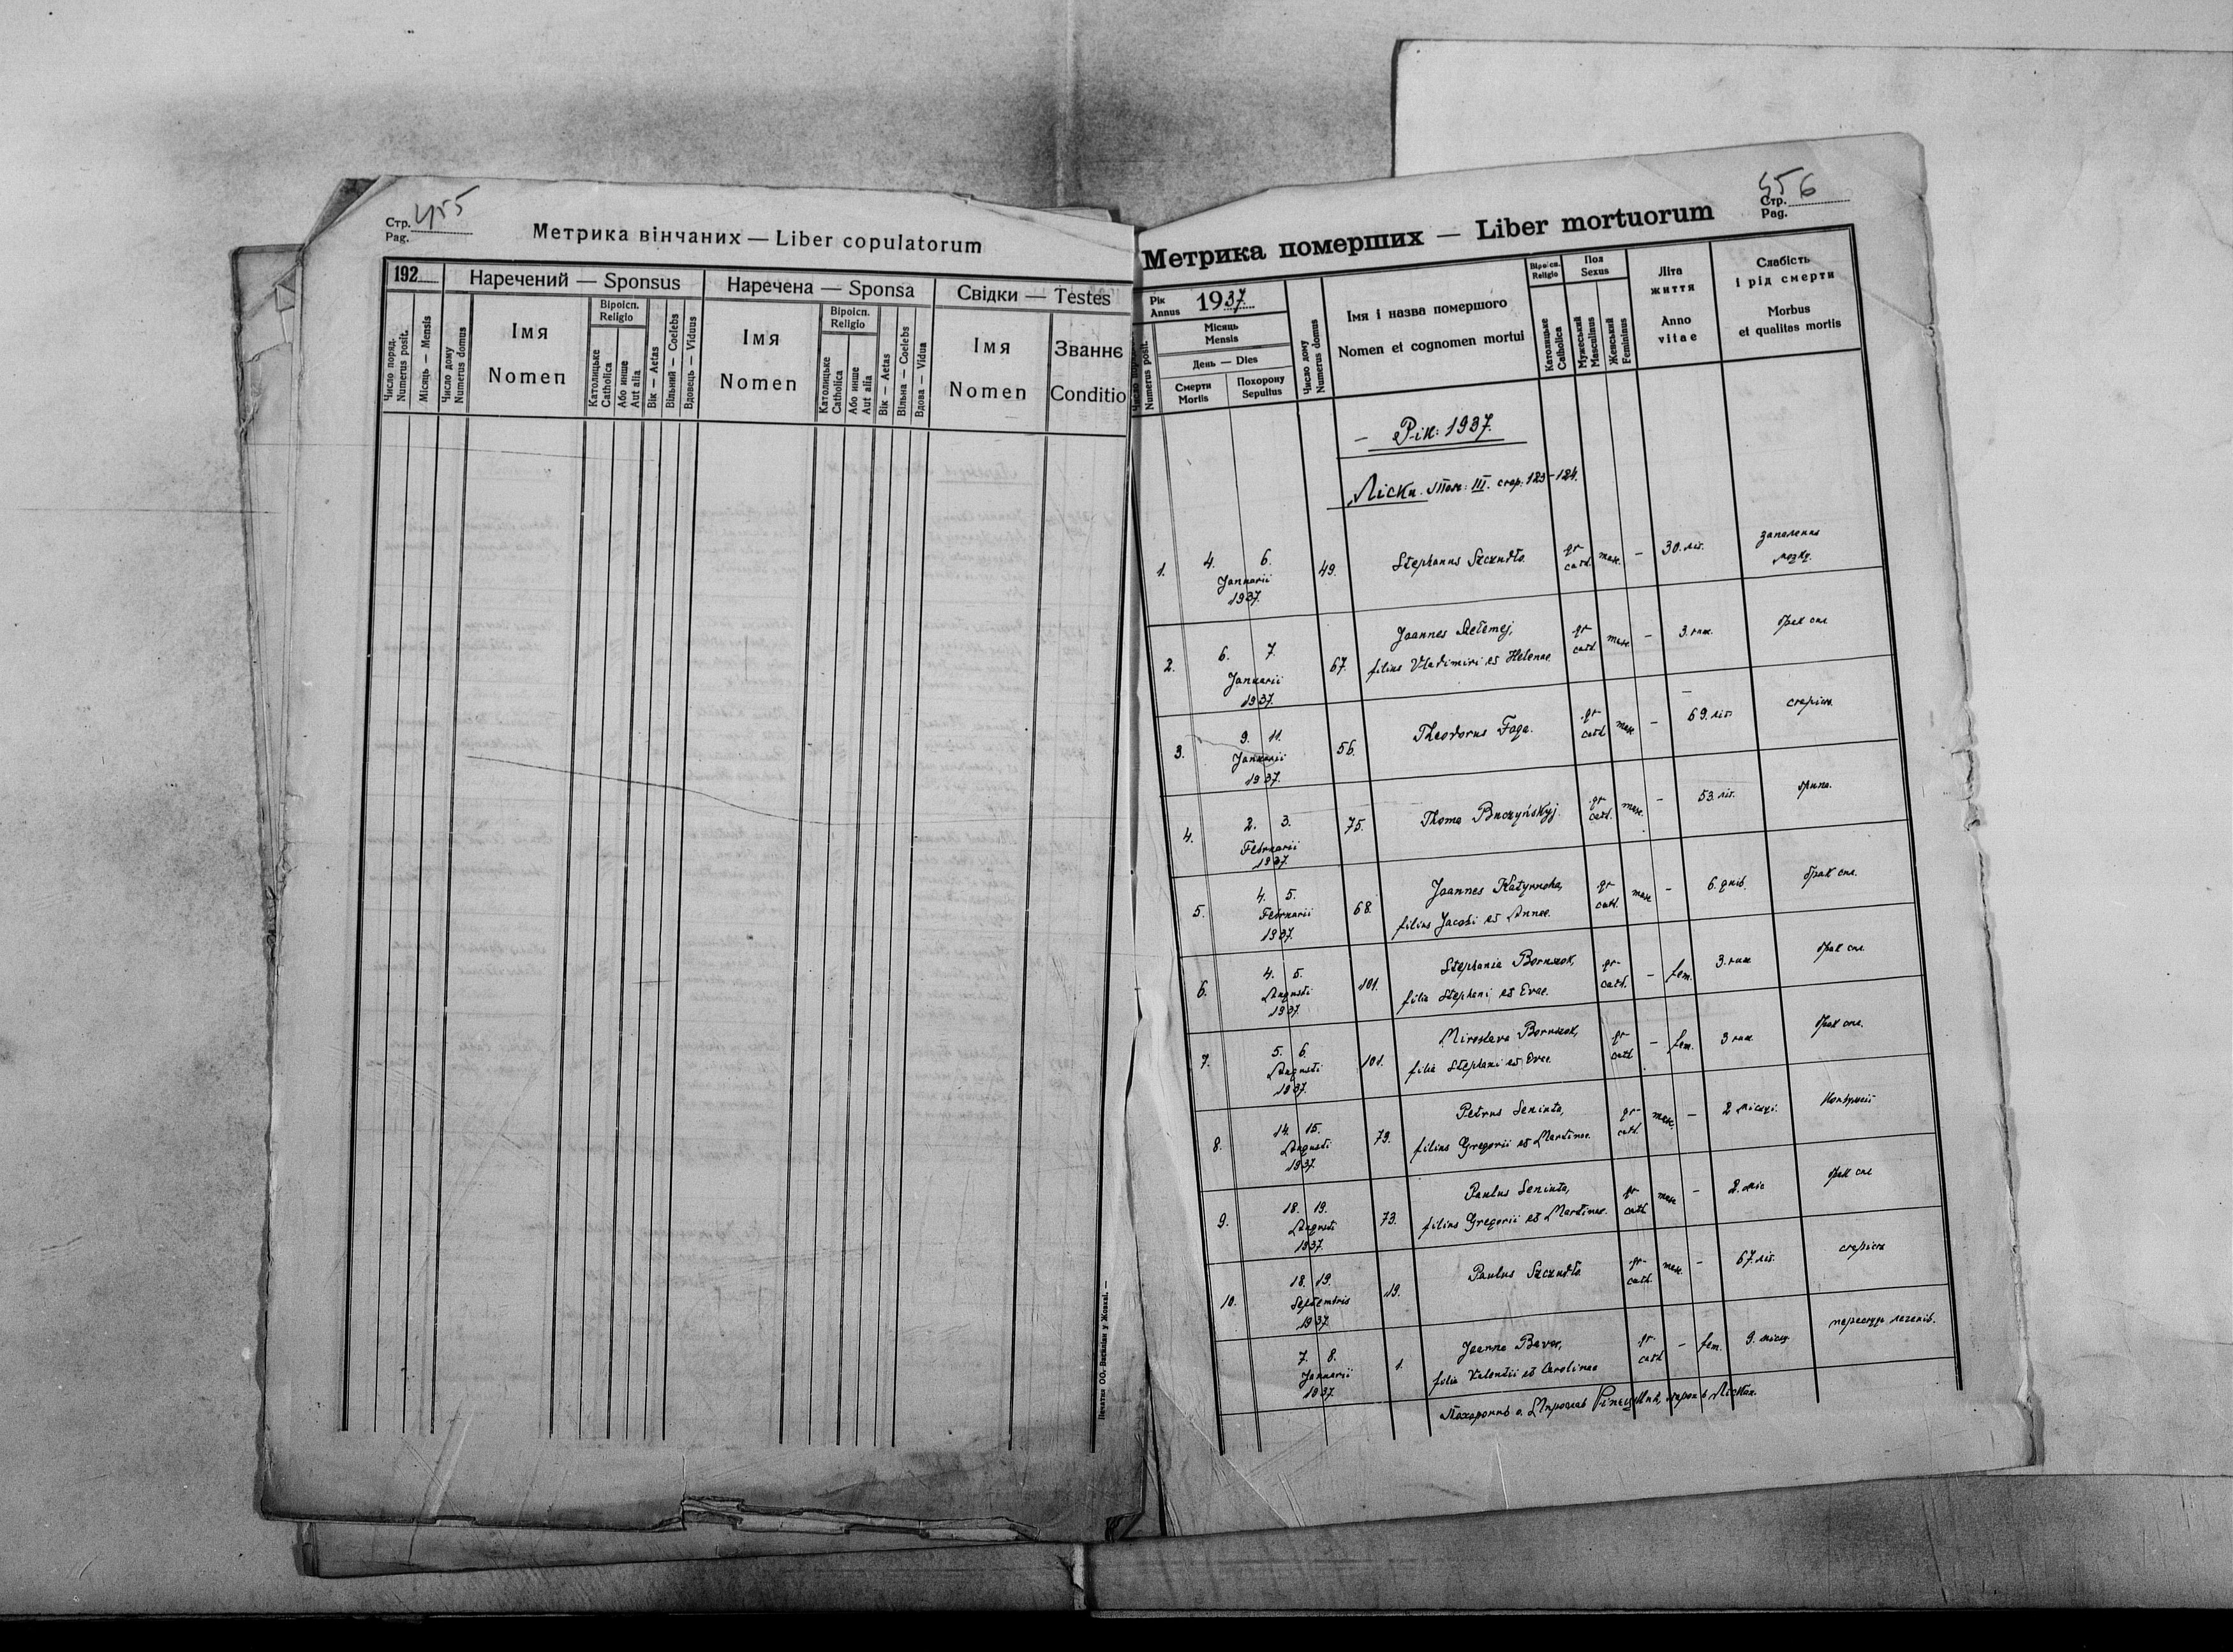 Стр. 455
Pag.
Метрика вінчаних — Liber copulatorum
192
Наречений — Sponsus
Наречена — Sponsa
Свідки — Testes
Число поряд.
Numerus posit.
Місяць — Mensis
Число дому
Numerus domus
Імя
Nomen
Віроісп.
Religio
Католицьке
Catholica
Або инше
Aut alia
Вік — Aetas
Вільний — Coelebs
Вдовець — Viduus
Імя
Nomen
Віроісп.
Religio
Католицьке
Catholica
Або инше
Aut alia
Вік — Aetas
Вільна — Coelebs
Вдова — Vidua
Імя
Nomen
Званнє
Conditio
Печатня ОО. Василіян у Жовкві. —
556
Стр.
Pag.
Метрика померших — Liber mortuorum
Рік
Annus
1937.
Число поряд.
Numerus posit.
Місяць
Mensis
День — Dies
Смерти
Mortis
Похорону
Sepultus
Число дому
Numerus domus
Імя і назва помершого
Nomen et cognomen mortui
Віроісп.
Religio
Католицьке
Catholica
Пол
Sexus
Мужеський
Masculinus
Женський
Femininus
Літа
життя
Anno
vitae
Слабість
і рід смерти
Morbus
et qualitas mortis
— Рік: 1937.
Ліски. Том: III. стор. 123-124.
1. 4. 6. Januarii 1937. 49. Stephanus Szczudło gr-cath. masc. — 30. літ. запалення мозку.
2. 6. 7. Januarii 1937. 67. Joannes
filius Vladimiri et Helenae gr-cath. masc. — 3. тиж. брак сил
3. 9. 11. Januarii 1937. 56. Theodorus Faga. gr-cath. masc. — 69. літ. старість.
4. 2. 3. Februarii 1937. 75. Thoma Buczyńskyj. gr-cath. masc. — 53. літ. грипа.
5. 4. 5. Februarii 1937. 68. Joannes
filius Jacobi et Annae. gr-cath. masc. — 6. днів. брак сил.
6. 4. 5. Augusti 1937. 101. Stephania Boruszok,
filia Stephani et Evae. gr-cath. — fem. 3. тиж брак сил.
7. 5. 6. Augusti 1937. 101. Miroslava Boruszok,
filia Stephani et Evae. gr-cath. — fem. 3 тиж. брак сил.
8. 14. 15. Augusti 1937. 73. Petrus Seniuta,
filius Gregorii et Martinae. gr-cath. masc. — 2 місяці.
9. 18. 19. Augusti 1937. 73. Paulus Seniuta,
filius Gregorii et Martinae. gr-cath. masc — 2. міс брак сил
10. 18. 19. Septembris 1937. 19. Paulus Szczudło gr-cath. masc. — 67. літ. старість
7. 8. Januarii 1937. 1. Joanna
filia Valentii et Carolinae gr-cath — fem. 9. місяц.
Похоронив о. Мирослав Ріпецький, парох в Лісках.